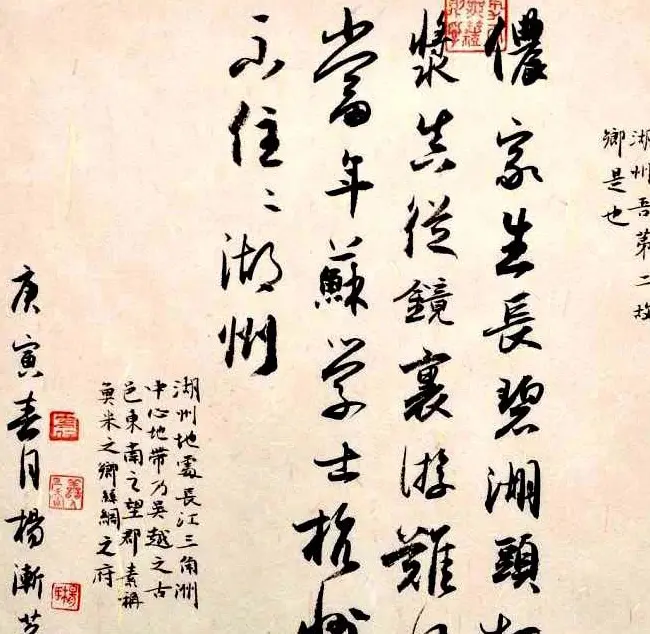 湖州吾第二故
鄉是也
儂家生長碧湖頭
漿真從鏡裏游難
當年蘇學士杭州
不住〻湖州
湖州地處長江三角洲
中心地帶乃吳越之古
邑東南之望郡素稱
魚米之鄉絲綢之府
庚寅春月楊漸